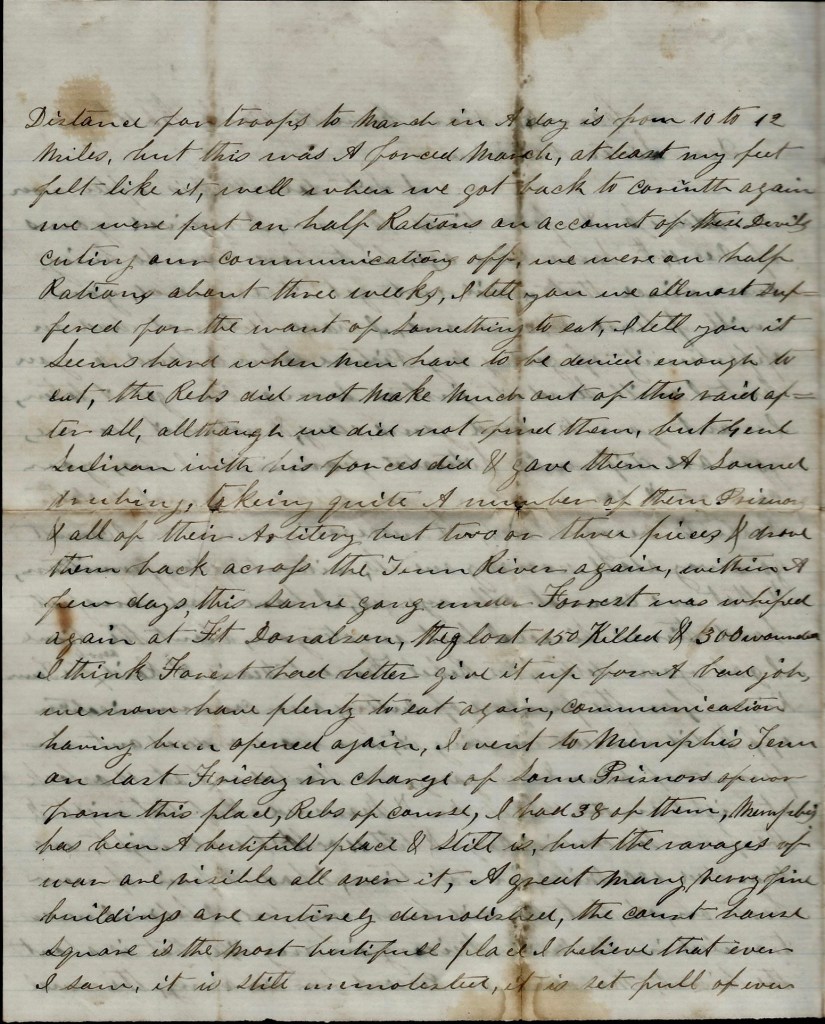 Distance for troops to March in A day is from 10 to 12
Miles, but this was A forced March, at least my feet
felt like it, well when we got back to Corinth again
we were put on half Rations on account of these Devils
cuting our communication off, we were on half
Rations about three weeks, I tell you we allmost suf=
fered for the want of something to eat, I tell you it
seems hard when men have to be denied enough to
eat, the Rebs did not make much out of this raid af=
ter all, allthough we did not find them, but Genl
Sulivan with his forces did & gave them A Sound
drubing, takeing quite A number of them Prisnors
& all of their Artilery but two or three pieces & drove
them back across the Tenn River again, within A
few days this same gang under Forrest was whiped
again at Ft Donalson, they lost 150 Killed & 300 wounded
I think Forest had better give it up for A bad job,
we now have plenty to eat again, communication
having been opened again, I went to Memphis Tenn
on last Friday in charge of some Prisnors of war
from this place, Rebs of course, I had 38 of them, Memphis
has been A butifull place & still is, but the ravages of
war are visible all over it, A great many very fine
buildings are entirely demolished, the court house
square is the most butifull place I believe that ever
I saw, it is still unmolested, it is set full of ever